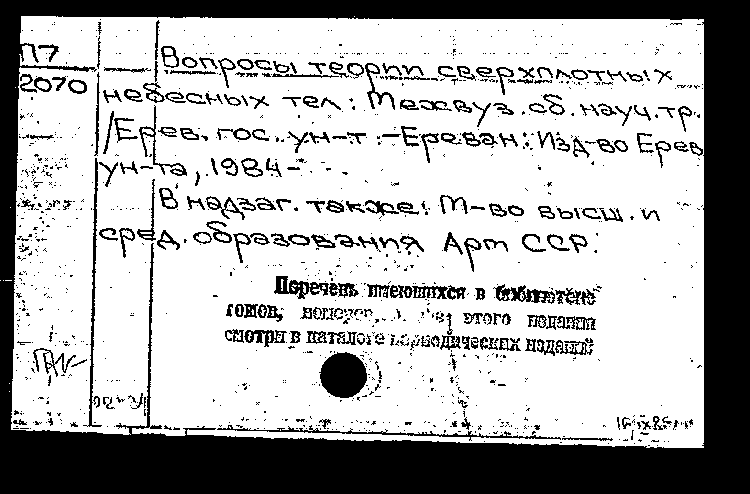 П7
2070
Вопросы теории сверхплотных
небесных тел: Межвуз. сб. науч. тр.
/Ерев. гос. ун-т. -Ереван: Изд-во Ерев
ун-та, 1984-
В надзаг. также: М-во высш. и
сред. образования Арм ССР.
Перечень имеющихся в библиотеке
томов, этого издания
смотри в каталоге периодических изданий